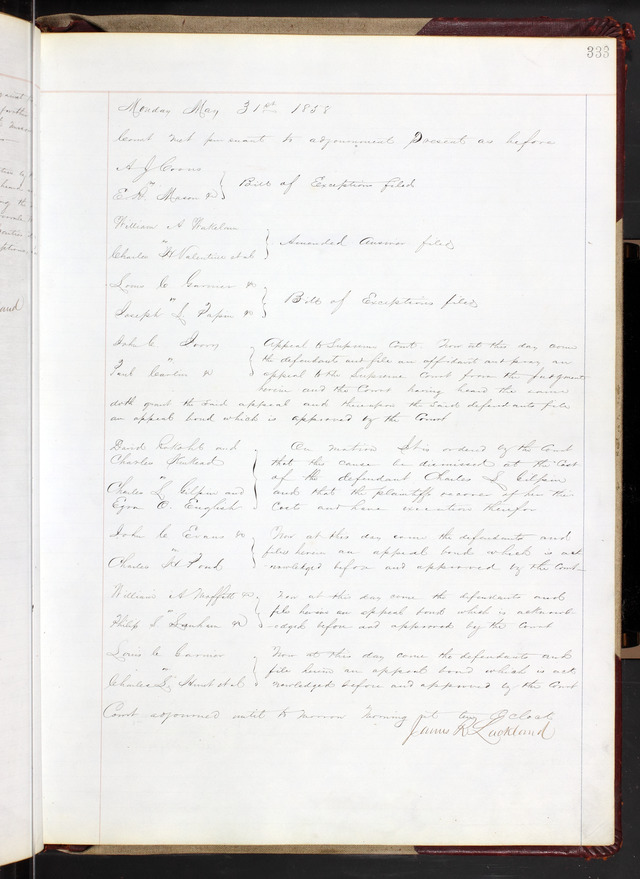 333
Monday May 31st 1858
Court met pursuant to adjournment Present as before
A J Coons
vs
E. H. Mason &c
Bill of Exceptions filed
William A Wakelam
vs
Charles H Valentine et al
Amended Answer filed
Louis C Garnier &c
vs
Joseph L Papin &c
Bill of Exceptions filed
John C Ivory
vs
Paul Carlin &c
Appeal to Supreme Court. Now at this day come
the defendants and file an affidavit and pray an
appeal to the Supreme Court from the judgment
herein and the Court having heard the same
doth grant the said appeal and thereupon the said defendants file
an appeal bond which is approved by the Court
David and
Charles
vs
Charles L Gilpin and
Egra O. English
On motion It is ordered by the Court
that this cause be dismissed at the Cost
of the defendant Charles L Gilpin
and that the plaintiff recover of him the
Costs and have execution therefor
John C Evans &c
vs
Charles H Pond
Now at this day come the defendants and
files herein an appeal bond which is ack
nowledged before and approved by the Court
William A Moffett &c
vs
Philip S Lanham &c
Now at this day come the defendants and
file herein an appeal bond which is acknowl
-edged before and approved by the Court
Louis C Garnier
vs
Charles L Hunt et al
Now at this day come the defendants and
file herein an appeal bond which is ack
nowledged before and approved by the Court
Court adjourned until to morrow morning at ten O'clock
James R Lackland